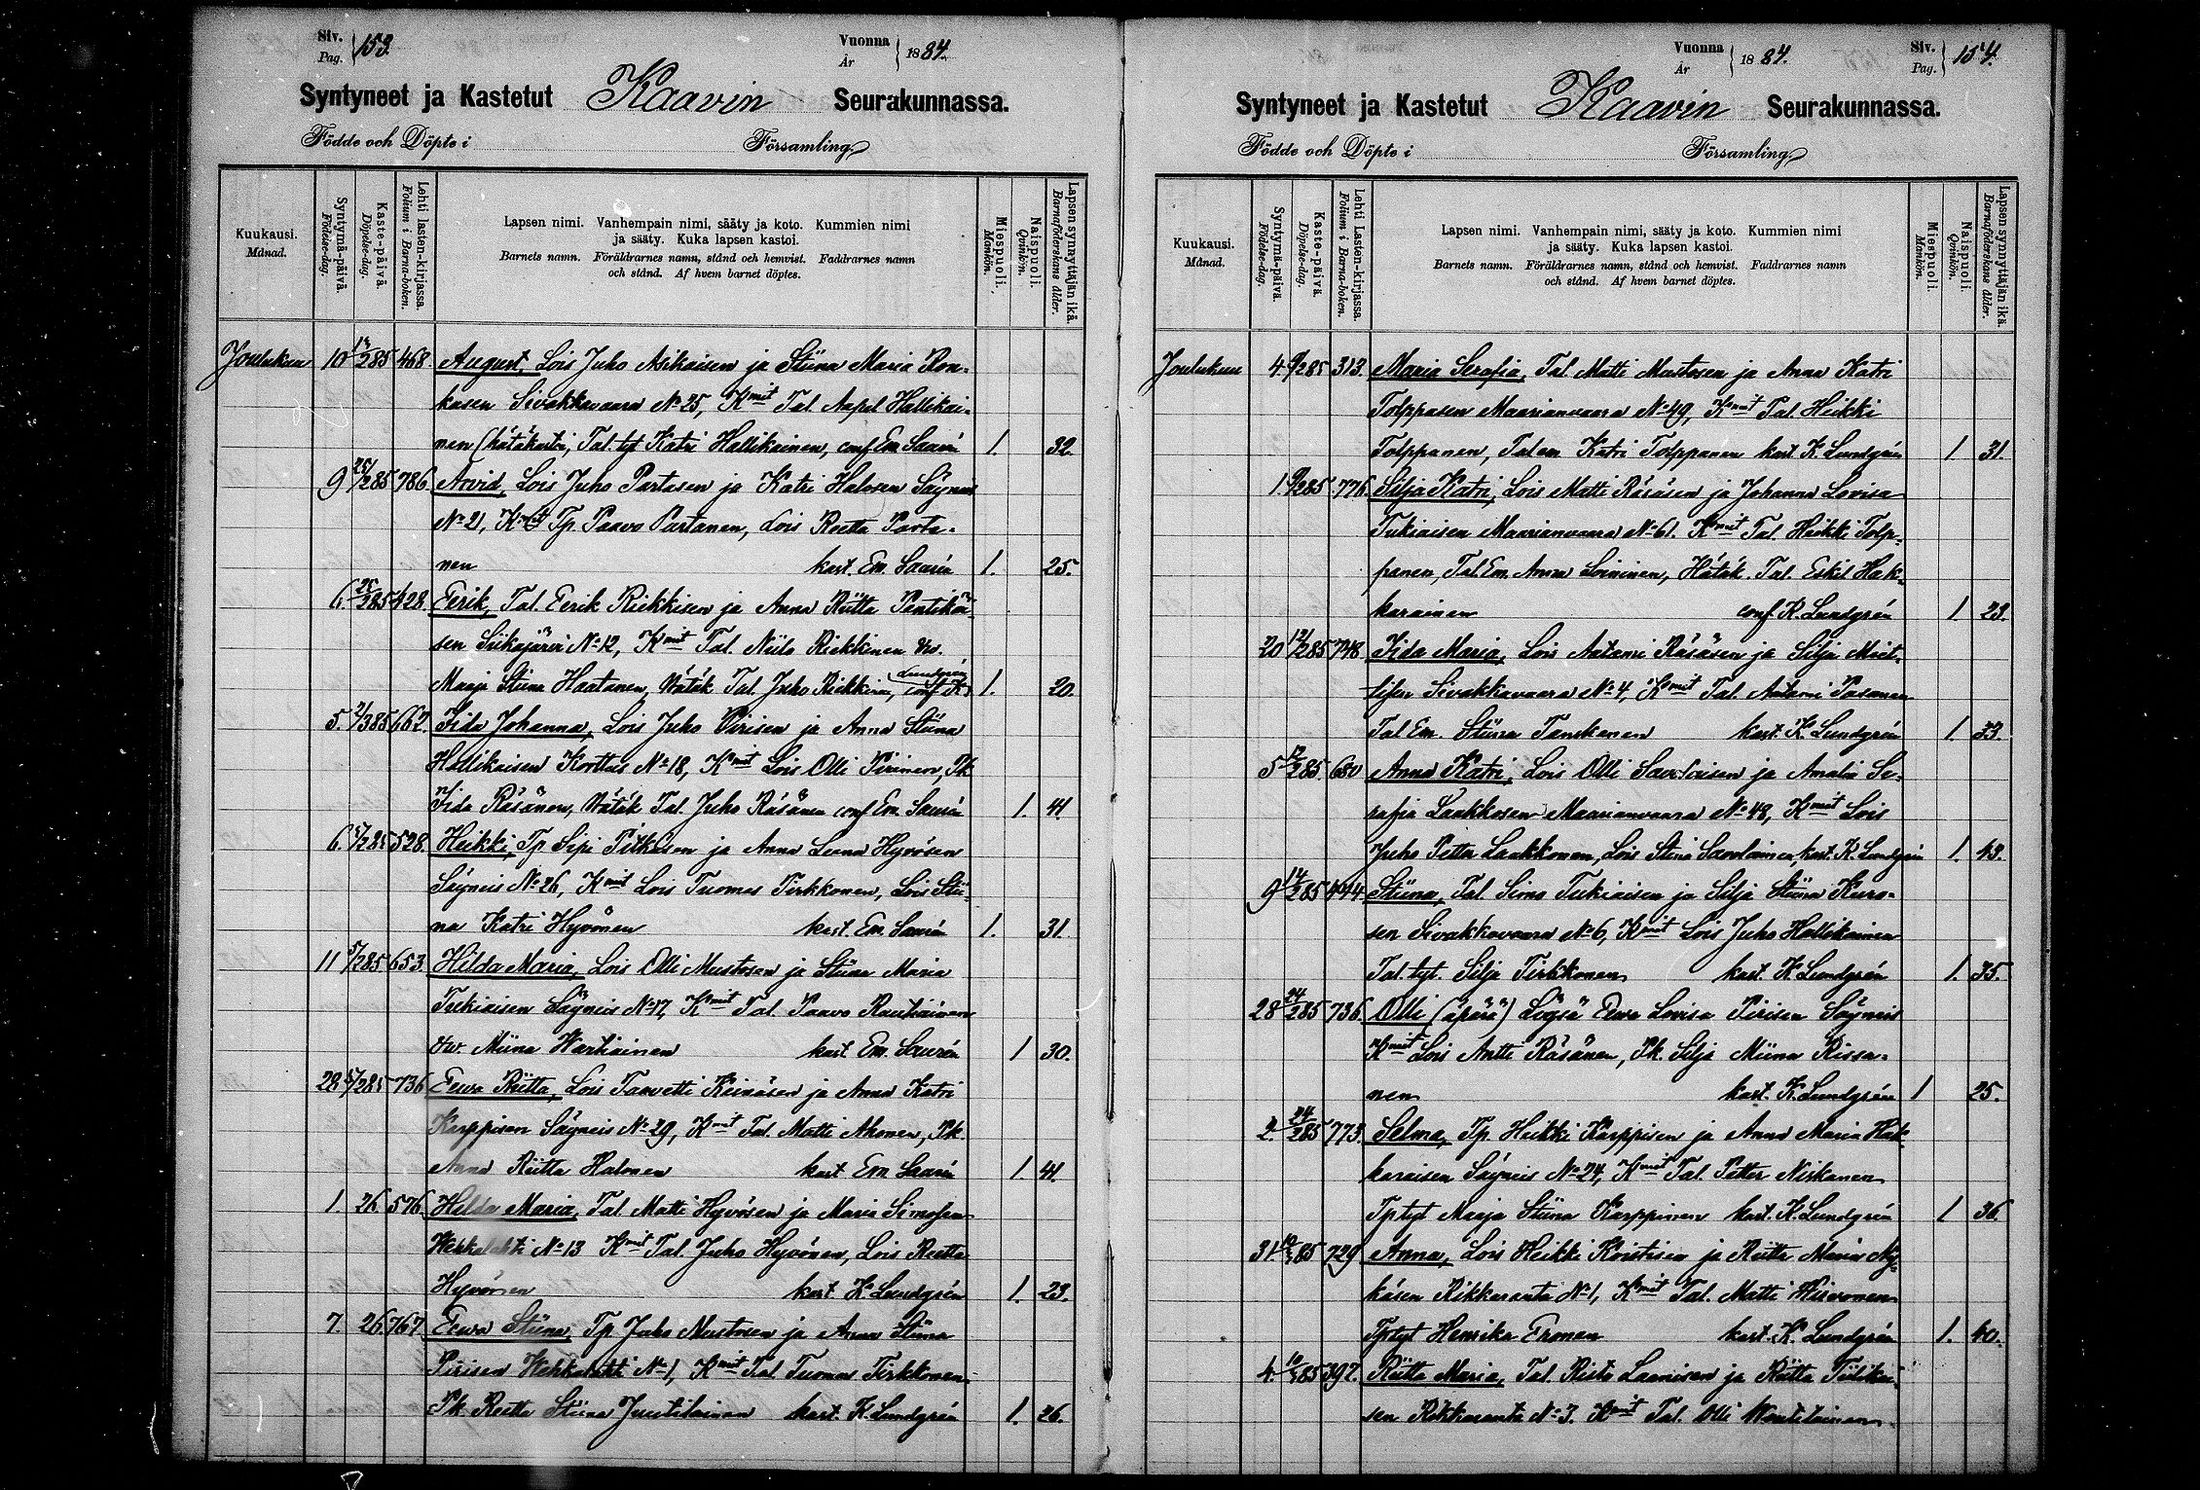 Siv. Pag. 153. Vuonna År 1884.
Syntyneet ja Kastetut Kaavin Seurakunnassa.
Födde och Döpte i Församling
Kuukausi. Månad.
Syntymä-päivä. Födelse-dag.
Kaste-päivä. Döpelse-dag.
Lehti lasten-kirjassa. Folium i Barna-boken.
Lapsen nimi. Vanhempain nimi, sääty ja koto. Kummien nimi
ja sääty. Kuka lapsen kastoi.
Barnets namn. Föräldrarnes namn, stånd och hemvist. Faddrarnes namn
och stånd. Af hvem barnet döptes.
Miespuoli. Mankön.
Naispuoli. Qvinkön.
Lapsen synnyttäjän ikä. Barnaföderskans ålder.
Joulukuu 10 285 468. August, Lois Juho Asikaisen ja Stiina Maria Ron-
kasen Sivakkavaara No 25, Kmit Tal. Aapel Hallikai-
nen (hätäkaste, Tal. tyt Katri Hallikainen, conf. Em. Saurén 1. 32.
9 285 786 Arvid, Lois Juho Partasen ja Katri Halosen Säyneis
No 21, Kmit Tp. Paavo Partanen, Lois Reetta Parta-
nen kast. Em. Saurén 1. 25.
6. 285 428. Eerik, Tal. Eerik Riekkisen ja Anna Riitta Pentikäi-
sen Siikajärvi No 12, Kmit Tal. Niilo Riekkinen
Maaja Stiina Haatanen, Hätäk Tal. Juho Riekkinen, conf. K. Lundgrén 1. 20.
5. 385 662. Iida Johanna, Lois Juho Piirisen ja Anna Stiina
Hallikaisen Korttus No 18, Kmit Lois Olli Piirinen, Pk
Iida Räsänen, Hätäk Tal. Juho Räsänen conf. Em. Saurén 1. 41
6. 285 528. Heikki, Tp Sipi Pitkäsen ja Anna Leena Hyvösen
Säyneis No 26, Kmit Lois Tuomas Tirkkonen, Lois Stii-
na Katri Hyvönen kast. Em. Saurén 1. 31.
11 5/285 653. Hilda Maria, Lois Olli Mustosen ja Stiina Maria
Tukiaisen Säyneis No 17, Kmit Tal. Paavo Rautiainen
Miina Wartiainen kast. Em. Saurén 1 30.
28. 5/285 736. Eewa Riitta, Lois Taavetti Keinäsen ja Anna Katri
Karppisen Säyneis No 29, Kmit Tal. Matti Ahonen, Pk
Anna Riitta Halonen kast Em. Saurén 1. 41.
1. 26. 576. Hilda Maria, Tal. Matti Hyvösen ja Maria Simosen
Wehkalahti No 13 Kmit Tal. Juho Hyvönen, Lois Reetta
Hyvönen kast K. Lundgrén 1. 23.
7. 26. 767 Eewa Stiina, Tp Juho Mustosen ja Anna Stiina
Piirisen Wehkalahti No 1, Kmit Tal. Tuomas Tirkkonen
Pk Reetta Stiina Juutilainen kast. K. Lundgrén 1. 26.
Vuonna År 1884. Siv. Pag. 154.
Syntyneet ja Kastetut Kaavin Seurakunnassa.
Födde och Döpte i Församling
Kuukausi. Månad.
Syntymä-päivä. Födelse-dag.
Kaste-päivä. Döpelse-dag.
Lehti Lasten-kirjassa. Folium i Barna-boken.
Lapsen nimi. Vanhempain nimi, sääty ja koto. Kummien nimi
ja sääty. Kuka lapsen kastoi.
Barnets namn. Föräldrarnes namn, stånd och hemvist. Faddrarnes namn
och stånd. Af hvem barnet döptes.
Miespuoli. Mankön.
Naispuoli. Qvinkön.
Lapsen synnyttäjän ikä. Barnaföderskans ålder.
Joulukuu 4 285 313. Maria Serafia, Tal. Matti Mustosen ja Anna Katri
Tolppasen Maarianvaara No 49, Kmit Tal. Heikki
Tolppanen, Tal em Katri Tolppanen kast. K. Lundgrén 1 31.
1. 285 776. Silja Katri, Lois Matti Räsäsen ja Johanna Lovisa
Tukiaisen Maarianvaara No 61. Kmit Tal. Heikki Tolp-
panen, Tal. Em. Anna Loininen, Hätäk. Tal. Eskil Hak-
karainen conf. K. Lundgrén 1 23.
20 285 748. Iida Maria, Lois Aatami Räsäsen ja Silja Miet-
Sivakkavaara No 4, Kmit Tal. Aatami Pasanen
Tal. Em. Stiina Tanskanen kast. K. Lundgrén 1. 33.
5 285 680 Anna Katri, Lois Olli Savolaisen ja Amalia Se-
rafia Laakkosen Maarianvaara No 48, Kmit Lois
Juho Petter Laakkonen, Lois Stina Savolainen, kast. K. Lundgrén 1. 43.
9 14/285 494. Stiina, Tal. Simo Tukiaisen ja Silja Stiina Kuro-
sen Sivakkavaara No 6, Kmit Lois Juho Hallikainen
Tal. tyt. Silja Tirkkonen kast. K. Lundgrén 1. 35.
28 24/285 736. Olli (äpärä) Lögsä Eewa Lovisa Piirisen Säyneis
Kmit Lois Antti Räsänen, Pk. Silja Miina Rissa-
nen kast. K. Lundgrén 1 25.
2. 24/285 773. Selma, Tp. Heikki Karppisen ja Anna Maria Hak-
karaisen Säyneis No 24, Kmit Tal. Petter Niskanen
Tp tyt Maaja Stiina Karppinen kast. K. Lundgrén 1 36.
31 85 729 Anna, Lois Heikki Koistisen ja Riitta Maria Ny-
käsen Rikkaranta No 1, Kmit Tal. Matti Hirvonen
Tp tyt Henrika Eronen kast. K. Lundgrén 1. 40.
4. 85 392. Riitta Maria, Tal. Risto Laanisen ja Riitta Tiilikai-
sen Rikkaranta No 3. Kmit Tal. Olli Wentilainen